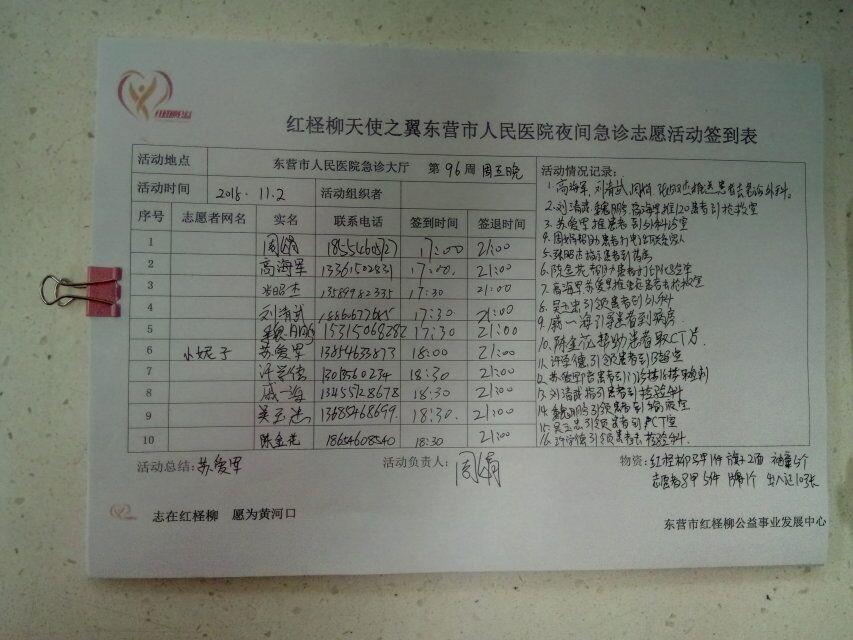 红柽柳天使之翼东营市人民医院夜间急诊志愿活动签到表
活动地点 东营市人民医院急诊大厅 第96周周五晚
活动时间 2015.11.2 活动组织者
序号 志愿者网名 实名 联系电话 签到时间 签退时间
1 周娟 18554605127 17:00 21:00
2 高海军 17:00 21:00
3 13589982335 17:30 21:00
4 刘清武 17:30 21:00
5 魏鹏鹏 15315068282 17:30 21:00
6 小妮子 苏爱军 13854633873 18:00 21:00
7 许学德 18:30 21:00
8 戚一海 13455128678 18:30 21:00
9 吴玉忠 13685468699 18:30 21:00
10 陈金花 18654608540 18:30 21:00
活动情况记录:
1.高海军.刘清武.周娟.
2.刘清武魏鹏高海军推120患者到抢救室
3.苏爱军推患者到外科诊室
4.周娟帮助患者打电话联系家人
5.
6.陈金花帮助患者打印化验单
7.高海军苏爱军推患者去抢救室
8.吴玉忠引领患者到外科
9.戚一海引导患者到病房
10.陈金花帮助患者取CT片.
11.许学德引领患者到B超室
12.苏爱军
13.刘清武指引患者到检验科
14.魏鹏鹏引领患者到输液室
15.吴玉忠引领患者到CT室
16.许学德引领患者去检验科.
活动总结: 苏爱军 活动负责人: 周娟 物资: 红柽柳马甲1件 旗子2面 袖章5个
志愿者马甲5件 牌1个 出入证103张
志在红柽柳 愿为黄河口
东营市红柽柳公益事业发展中心